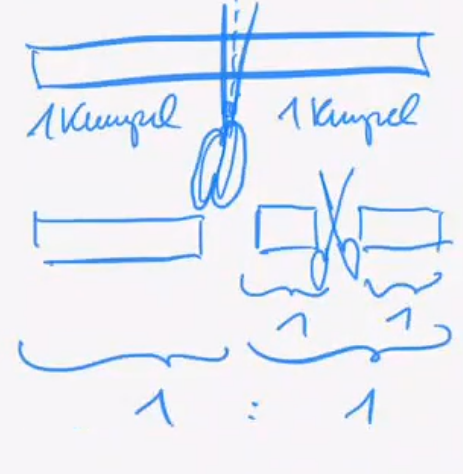 1 Kumpel 1 Kumpel
1 1
1 : 1